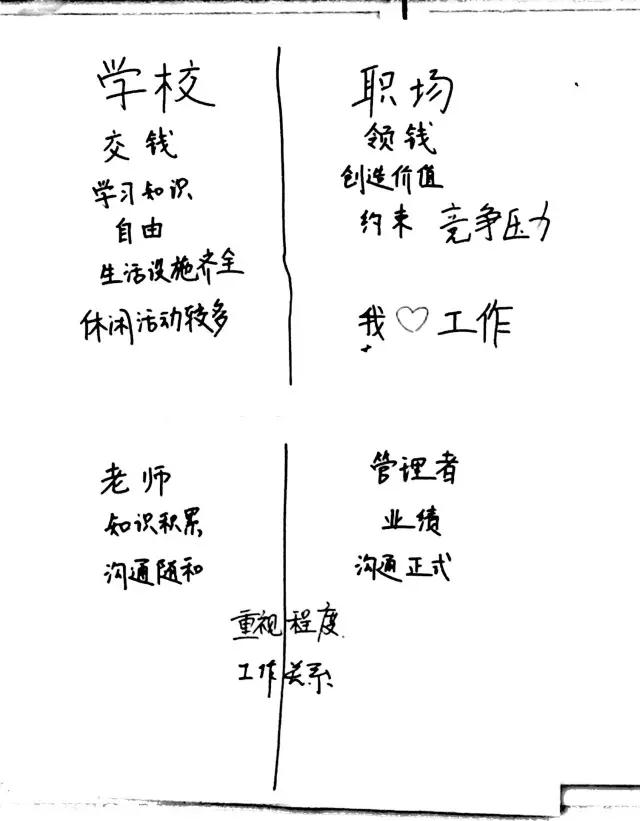 学校
交钱
学习知识
自由
生活设施齐全
休闲活动较多
职场
领钱
创造价值
约束 竞争压力
我♡工作
老师
知识积累
沟通随和
管理者
业绩
沟通正式
重视程度
工作关系